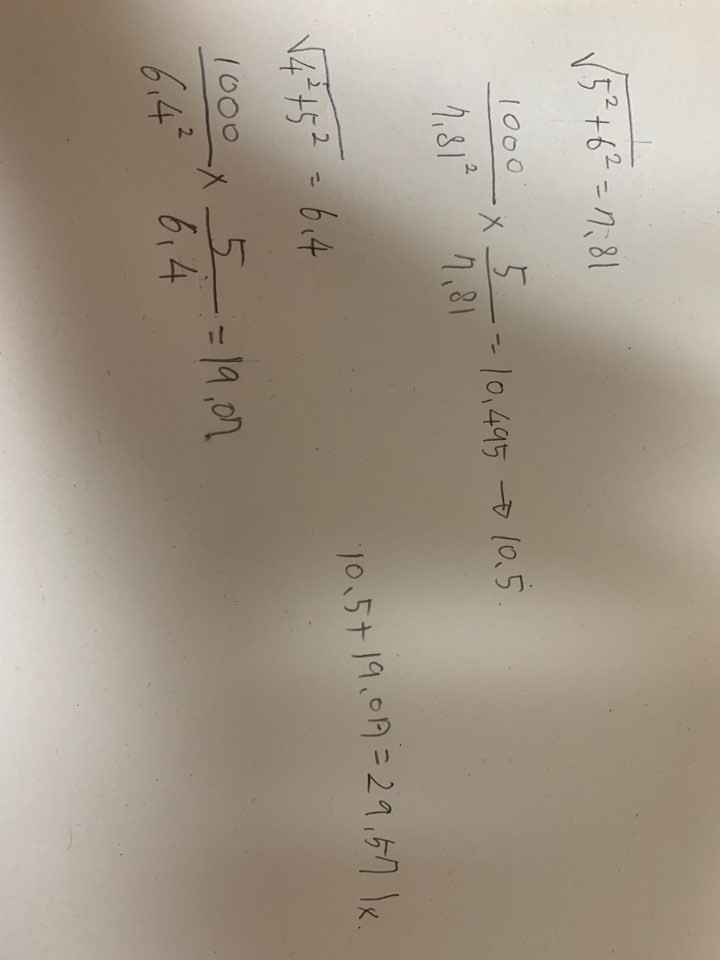 √5²+6² = 7.81
1000/7.81² × 5/7.81 = 10.495 → 10.5
√4²+5² = 6.4
1000/6.4² × 5/6.4 = 19.07
10.5+19.07 = 29.57 lx.